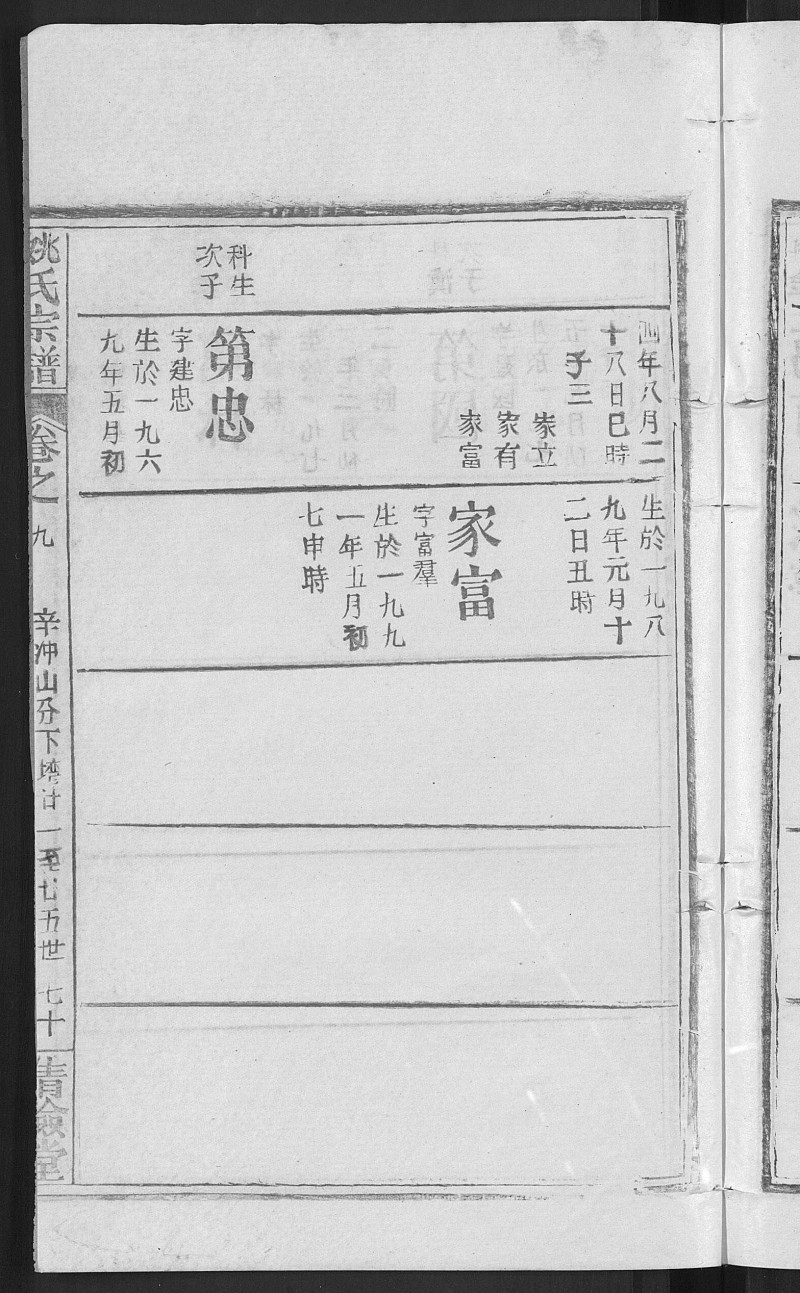 科生
次子
四年八月二
十八日巳時
子三
家立
家有
家富
第忠
字建忠
生於一九六
九年五月初
生於一九八
九年元月十
二日丑時
家富
字富羣
生於一九九
一年五月初
七申時
姚氏宗譜
卷之
九
辛冲山分下塆
一至七五世
七十
清儉堂